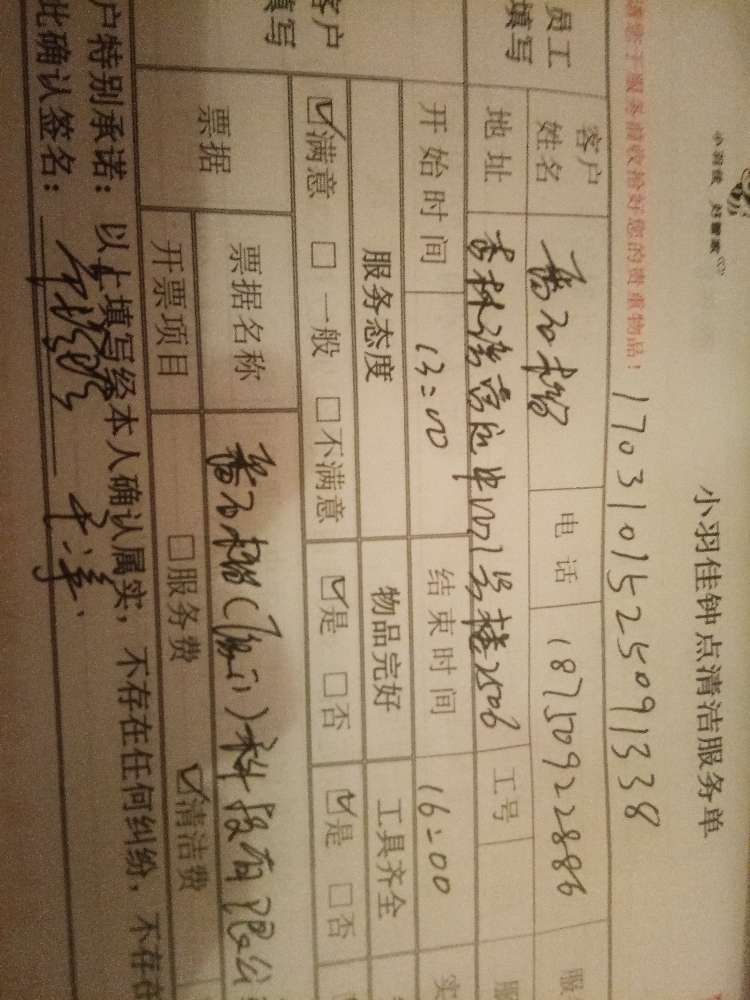 小羽佳 好管家
小羽佳钟点清洁服务单
1703101525091338
请您于服务前收拾好您的贵重物品！
员工填写
客户姓名 电话 18750922886 服
地址 1号楼2506 工号 服
开始时间 13:00 结束时间 16:00 实
客户填写
服务态度 物品完好 工具齐全
☑满意 □一般 □不满意 ☑是 □否 ☑是 □否
票据 票据名称 (厦门)科技有限公
开票项目 □服务费 ☑清洁费
户特别承诺：以上填写经本人确认属实，不存在任何纠纷，不存在
此确认签名：